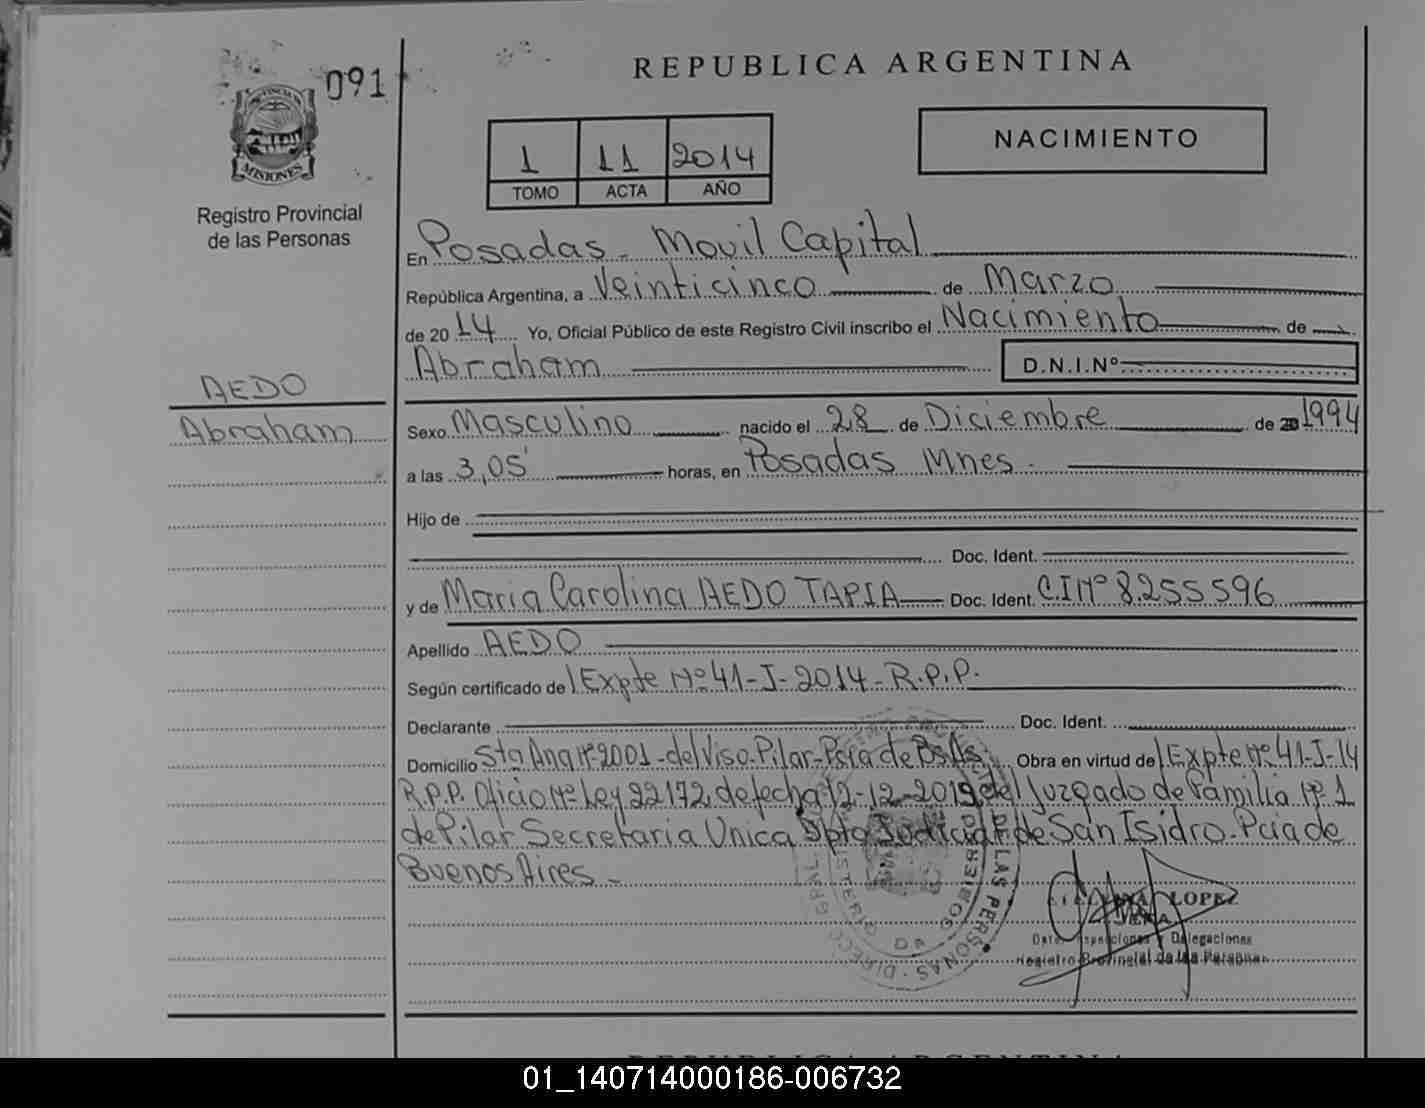 091
REPUBLICA ARGENTINA
PROVINCIA DE
MISIONES
Registro Provincial
de las Personas
1 11 2014
TOMO ACTA AÑO
NACIMIENTO
En Posadas - Movil Capital
República Argentina, a Veinticinco de Marzo
de 2014 Yo, Oficial Público de este Registro Civil inscribo el Nacimiento de
Abraham D.N.I.Nº
AEDO
Abraham
Sexo Masculino nacido el 28 de Diciembre de 1994
a las 3,05' horas, en Posadas Mnes.
Hijo de
Doc. Ident.
y de Maria Carolina AEDO TAPIA Doc. Ident. C.I Nº 8.255596
Apellido AEDO
Según certificado de Expte Nº 41-J-2014-R.P.P.
Declarante Doc. Ident.
Domicilio Sta Ana Nº 2001 - del Viso-Pilar-Pcia de Bs As Obra en virtud de Expte Nº 41-J-14
R.P.P. Oficio Nº Ley 22172, de fecha 12-12- del Juzgado de Familia Nº 1
de Pilar Secretaria Unica Dpto Judicial de San Isidro-Pcia de
Buenos Aires -
LOPEZ
Dpto. Inspecciones y Delegaciones
Registro Provincial de las Personas
REPUBLICA ARGENTINA
01_140714000186-006732